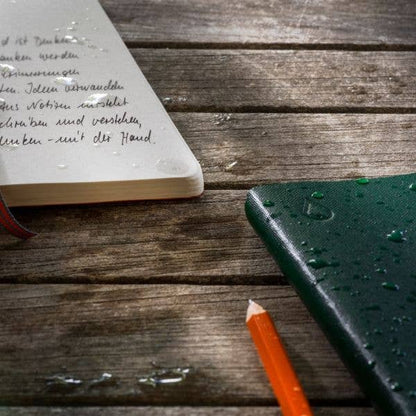 d ist Denken
anken werden
rinnerungen
ten. Ideen verwandeln
aus Notizen entsteht
schreiben und verstehen,
denken - mit der Hand.